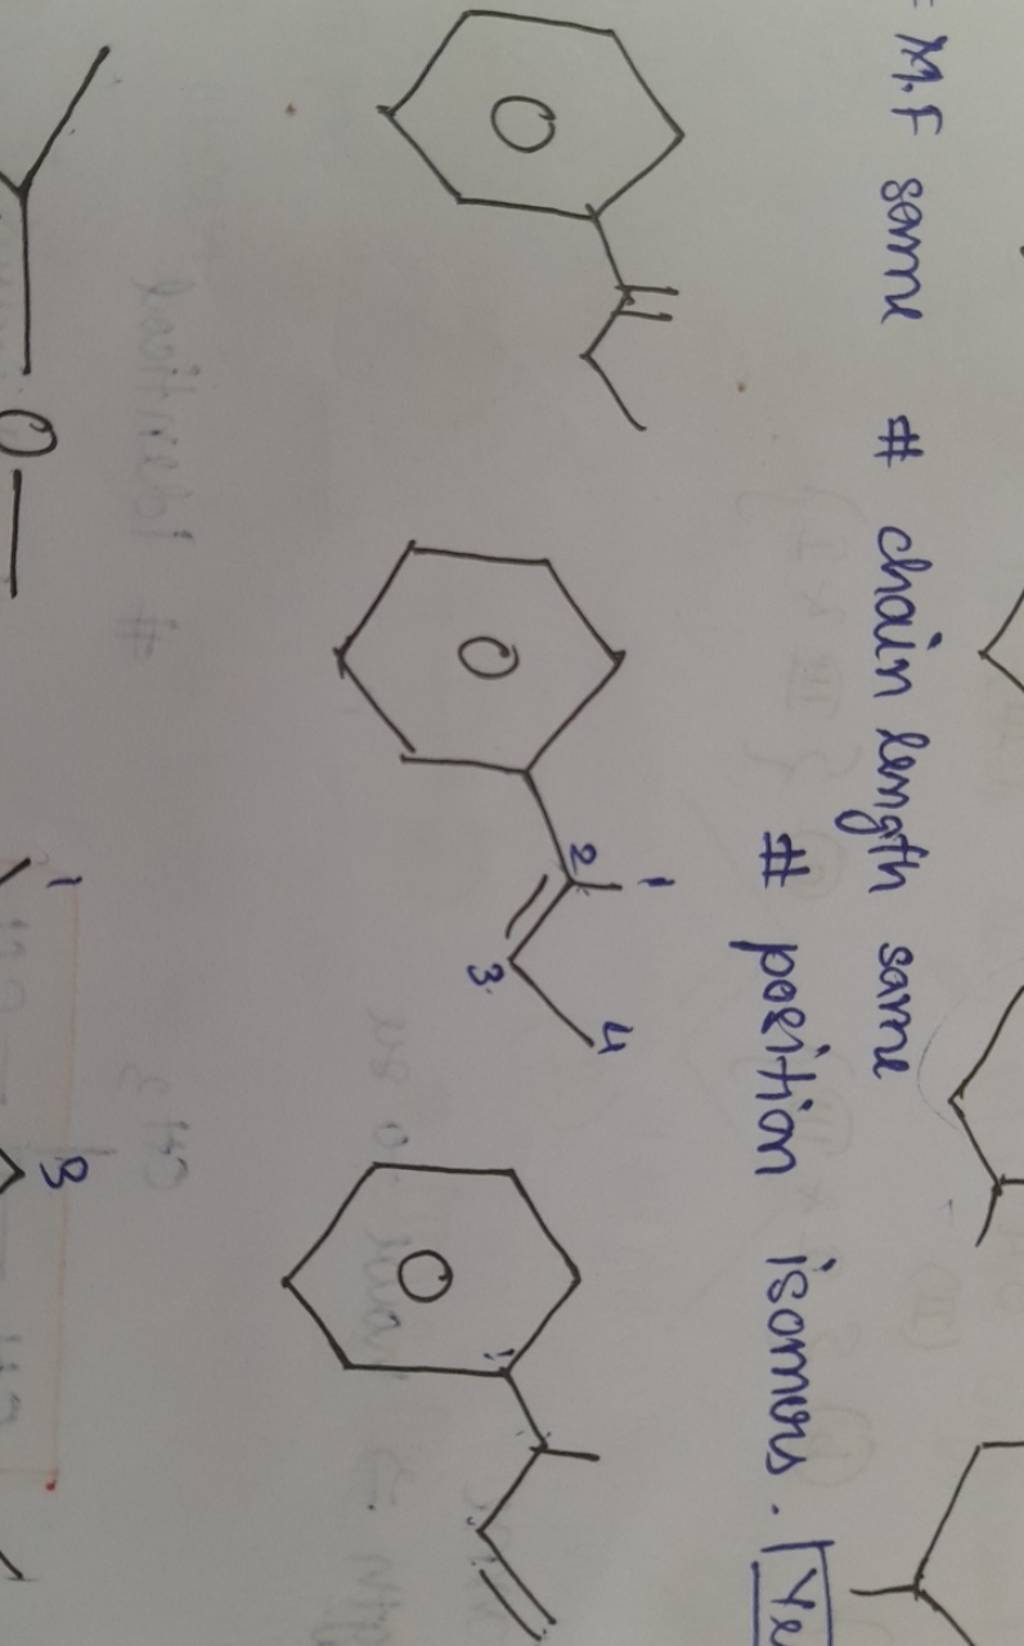 = M.F same # chain length same
# position isomers. Ye
O O O
2 1
3 4
1
O
1 3